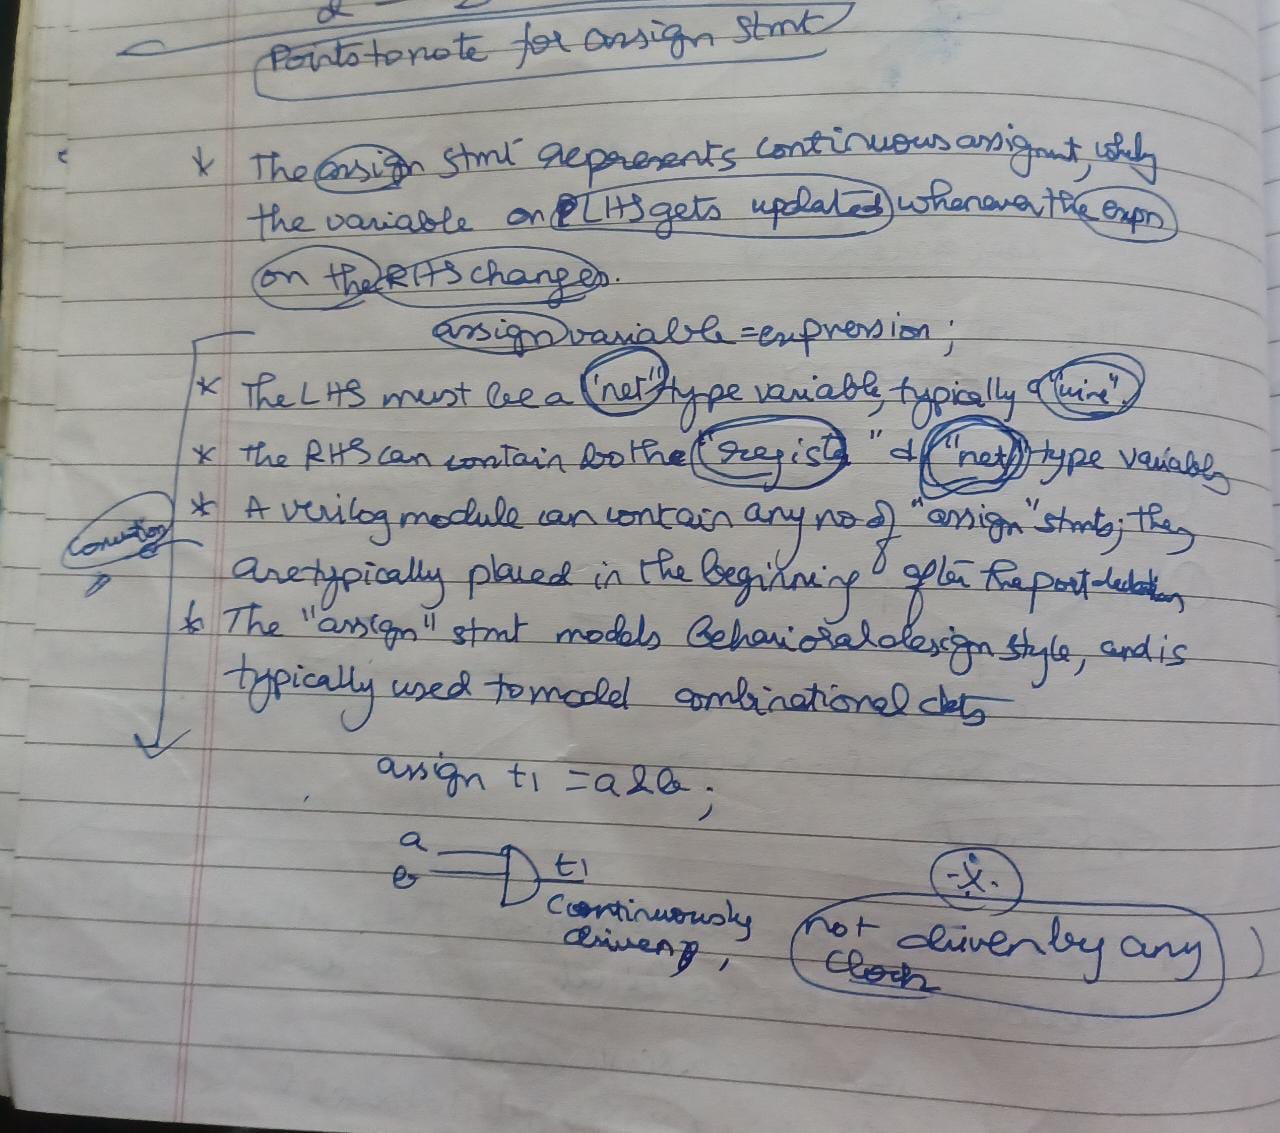 Points to note for assign stmt
* The assign stmt represents continuous assignmt, whly
the variable on LHS gets updated whenever the expn
on the RHS changes.
assign variable = expression;
* The LHS must be a "net" type variable, typically a "wire".
* the RHS can contain bothe "regist" " & "net" type variables
* A verilog module can contain any no of "assign" stmts; they
are typically placed in the beginning after the port declation,
* The "assign" stmt models Behavioral design style, and is
typically used to model combinational ckts
assign t1 = a & b;
a
b
t1
continuously
driven,
-x-
not driven by any
clock